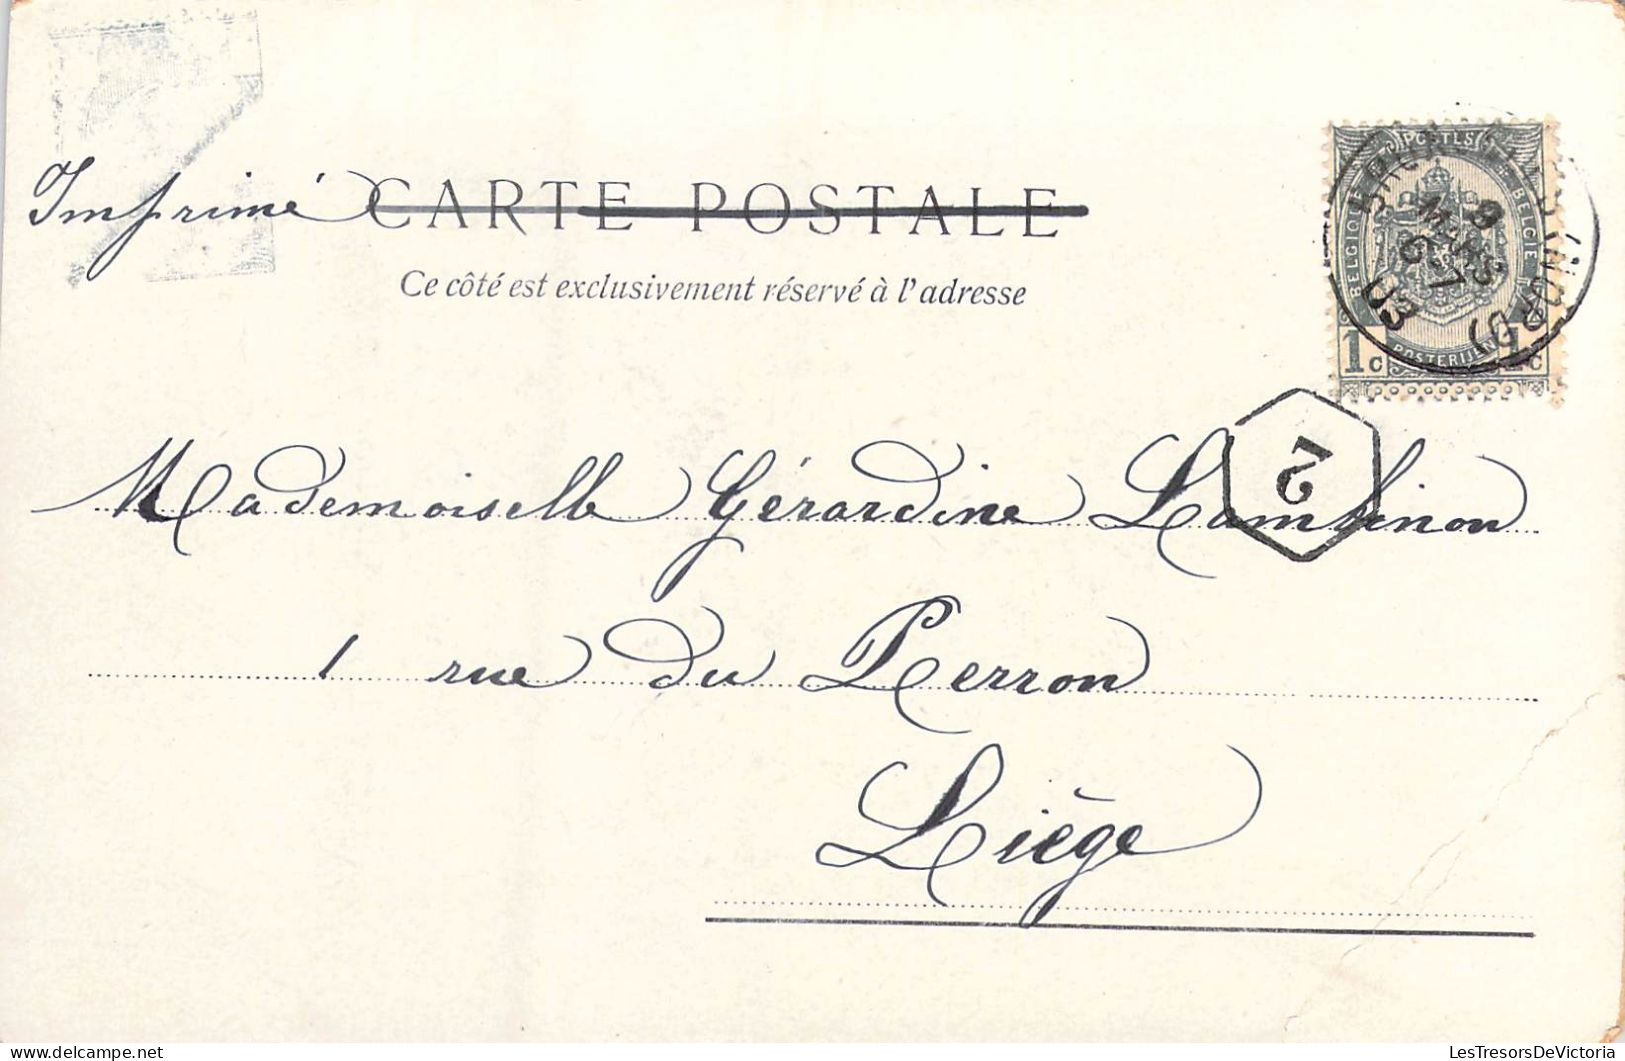 Imprimé CARTE POSTALE
Ce côté est exclusivement réservé à l'adresse
POSTES
BELGIQUE BELGIE
9
MARS
6-7
03
(NORD)
1c 1c
POSTERIJEN
2
Mademoiselle Gérardine Lambinon
1 rue du Perron
Liège
LesTresorsDeVictoria